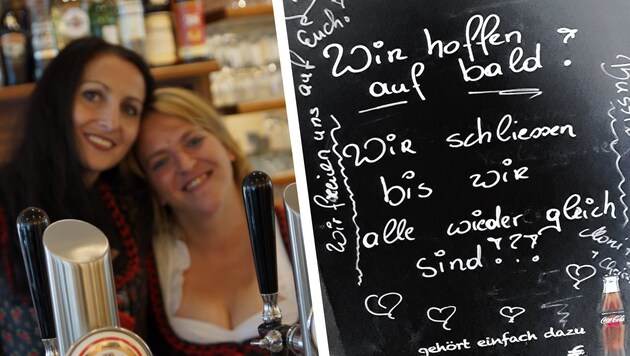 Wir freuen uns auf Euch!
Wir hoffen
auf bald?
Wir schliessen
bis wir
alle wieder gleich
sind???
Moni
gehört einfach dazu
Coca-Cola